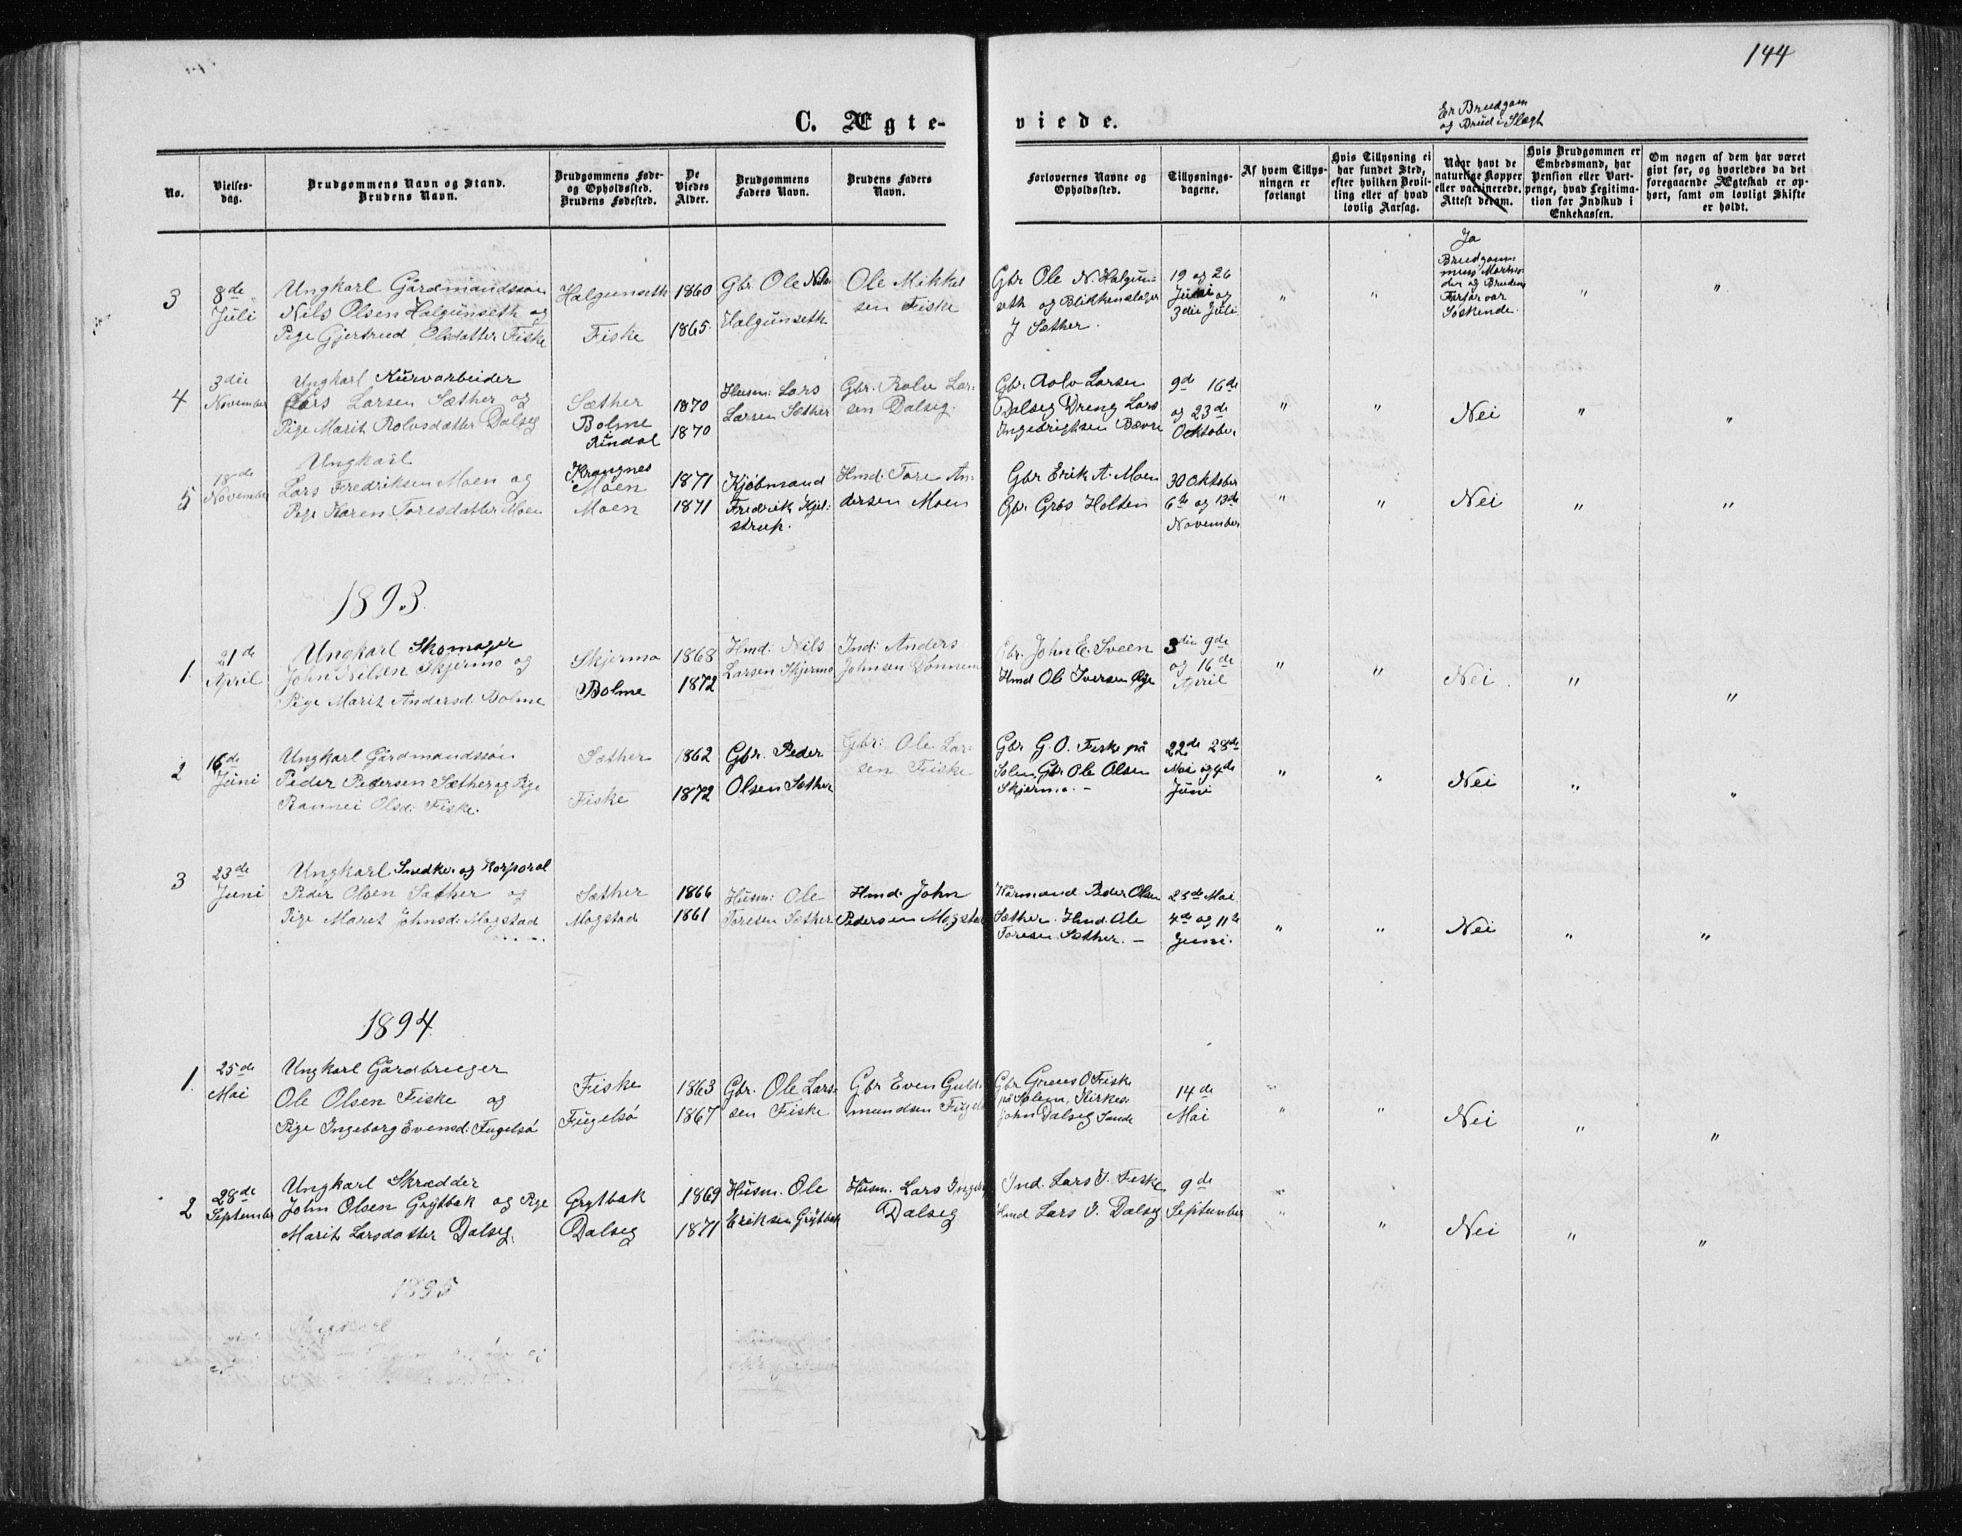 144
C. Ægteviede.
Er Brudgom
og Brud i Slægt
No.
Vielsesdag.
Brudgommens Navn og Stand.
Brudens Navn.
Brudgommens Føde-
og Opholdssted.
Brudens Fødested.
De
Viedes
Alder.
Brudgommens
Faders Navn.
Brudens Faders
Navn.
Forlovernes Navne og
Opholdssted.
Tillysnings-
dagene.
Af hvem Tillys-
ningen er
forlangt
Hvis Tillysning ei
har fundet Sted,
efter hvilken Bevil-
ling eller af hvad
lovlig Aarsag.
Naar havt de
naturlige Kopper
eller vaccinerede.
Attest derom.
Hvis Brudgommen er
Embedsmand, har
Pension eller Vart-
penge, hvad Legitima-
tion for Indskud i
Enkekassen.
Om nogen af dem har været
givt før, og hvorledes da det
foregaaende Ægteskab er op-
hørt, samt om lovligt Skifte
er holdt.
3
8de
Juli
Ungkarl Gårdmandssøn
Nils Olsen Halgunseth og
Pige Gjertrud Olsdatter Fiske
Halgunseth
Fiske
1860
1865
Gbr. Ole Nils
Halgunseth
Ole Mikkel
sen Fiske
Gbr Ole N. Halgun-
seth og Blikkenslager
J Sæther.
19 og 26
Juni og
3die Juli
"
"
Ja
Brudgom
mens
der og Brudens
Farfar var
Søskende.
"
"
4
3die
November
Ungkarl Kurvarbeider
Lars Larsen Sæther og
Pige Marit Rolvsdatter Dalseg
Sæther
Bolme
Rindal
1870
1870
Husm: Lars
Larsen Sæther
Gbr. Rolv Lar-
sen Dalseg.
Gbr. Rolv Larsen
Dalseg Dreng Lars
Ingebrigtsen Bævre
9de 16de
og 23de
Oktober
"
"
Nei
"
"
5
18de
November
Ungkarl
Lars Fredriksen Moen og
Pige Karen Toresdatter Moen
Krangnes
Moen
Moen
1871
1871
Kjøbmand
Fredrik Kjel-
strup.
Hmd: Tore An
dersen Moen
Gbr Erik A. Moen
Gbr Holten
30 Oktober
6te og 13de
November
"
"
Nei
"
"
1893.
1.
21de
April
Ungkarl Skomager
John Nilsen Skjermo og
Pige Marit Andersd: Bolme
Skjermo
Bolme
1868
1872
Hmd: Nils
Larsen Skjermo
Ind: Anders
Johnsen Dønnem
Gbr. John E. Sveen
Hmd Ole Iversen Øye
3die 9de
og 16de
April
"
"
Nei.
"
"
2
16de
Juni
Ungkarl Gårdmandssøn
Peder Pedersen Sæther og Pige
Rannei Olsd: Fiske.
Sæther
Fiske
1862
1872
Gbr. Peder
Olsen Sæther
Gbr: Ole Lar-
sen Fiske
Gbr G. O. Fiske på
Solem Gbr Ole Olsen
Skjermo. -
22de 28de
Mai og 4de
Juni
"
"
Nei
"
"
3
23de
Juni
Ungkarl Snedker og Korporal
Peder Olsen Sæther og
Pige Marit Johnsd: Mogstad
Sæther
Mogstad
1866
1861
Husm: Ole
Toresen Sæther
Hmd: John
Pedersen Mogstad
Kårmand Peder Olsen
Sæther. Hmd. Ole
Toresen Sæther. -
25de Mai
4de og 11te
Juni.
"
"
Nei
"
"
1894.
1.
25de
Mai
Ungkarl Gårdbruger
Ole Olsen Fiske og
Pige Ingeborg Evensd: Fugelsø
Fiske
Fugelsø
1863
1867
Gbr. Ole Lar-
sen Fiske
Gbr Even Guld-
mundsen Fugelsø
Gbr O Fiske
på Solem, Kirkes.
John Dalseg Sande
14de
Mai
"
"
Nei
"
"
2
28de
September
Ungkarl Skrædder
John Olsen Grytbak og Pige
Marit Larsdatter Dalseg.
Grytbak
Dalseg
1869
1871
Husm. Ole
Eriksen Grytbak
Husm. Lars Ingebr
Dalseg
Ind. Lars I. Fiske
Hmd Lars I. Dalseg
9de
September
"
"
Nei
"
"
1895
Ungkarl